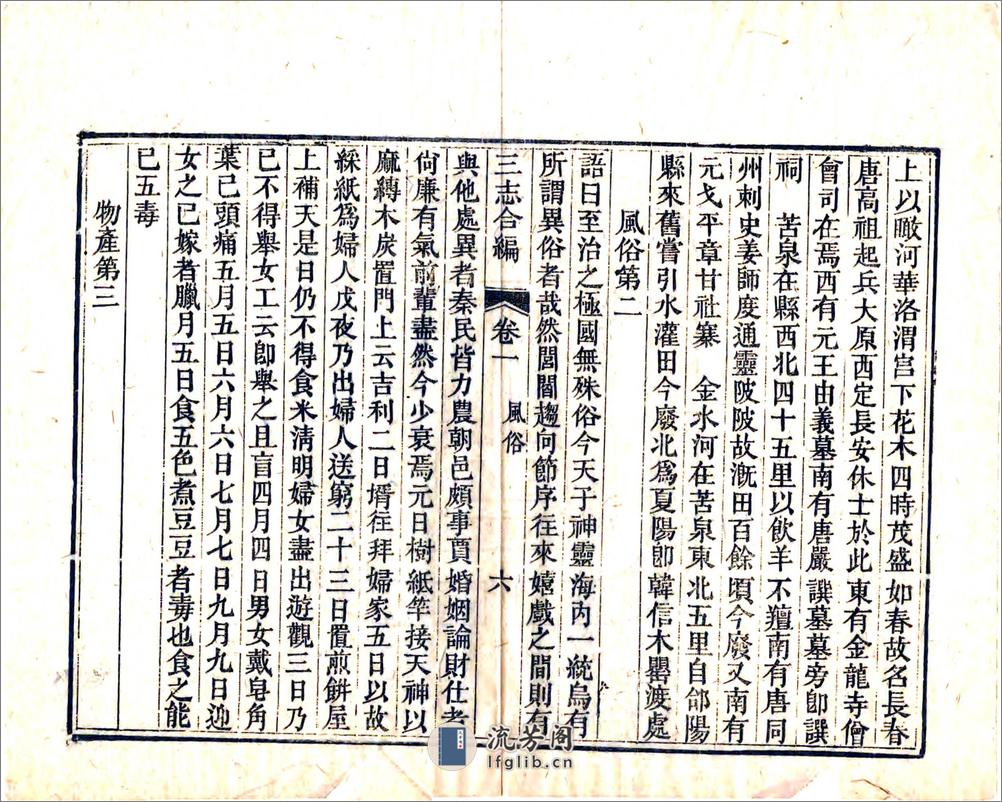 上以瞰河華洛渭宫下花木四時茂盛如春故名長春
唐高祖起兵大原西定長安休士於此東有金龍寺僧
會司在焉西有元王由義墓南有唐嚴譔墓墓旁卽譔
祠　苦泉在縣西北四十五里以飲羊不羶南有唐同
州刺史姜師度通靈陂陂故漑田百餘頃今廢又南有
元戈平章甘社寨　金水河在苦泉東北五里自郃陽
縣來舊嘗引水灌田今廢北爲夏陽卽韓信木罌渡處
風俗第二
語曰至治之極國無殊俗今天子神靈海內一統烏有
所謂異俗者哉然閭閻趨向節序往來嬉戲之間則有
三志合編　卷一　風俗　六
與他處異者秦民皆力農朝邑頗事賈婚姻論財仕者
尙廉有氣前輩盡然今少衰焉元日樹紙竿接天神以
麻縛木炭置門上云吉利二日壻往拜婦家五日以故
綵紙爲婦人戊夜乃出婦人送窮二十三日置煎餠屋
上補天是日仍不得食米淸明婦女盡出遊觀三日乃
已不得舉女工云卽舉之且盲四月四日男女戴皂角
葉已頭痛五月五日六月六日七月七日九月九日迎
女之已嫁者臘月五日食五色煮豆豆者毒也食之能
已五毒
物產第三
流芳阁
lfglib.cn